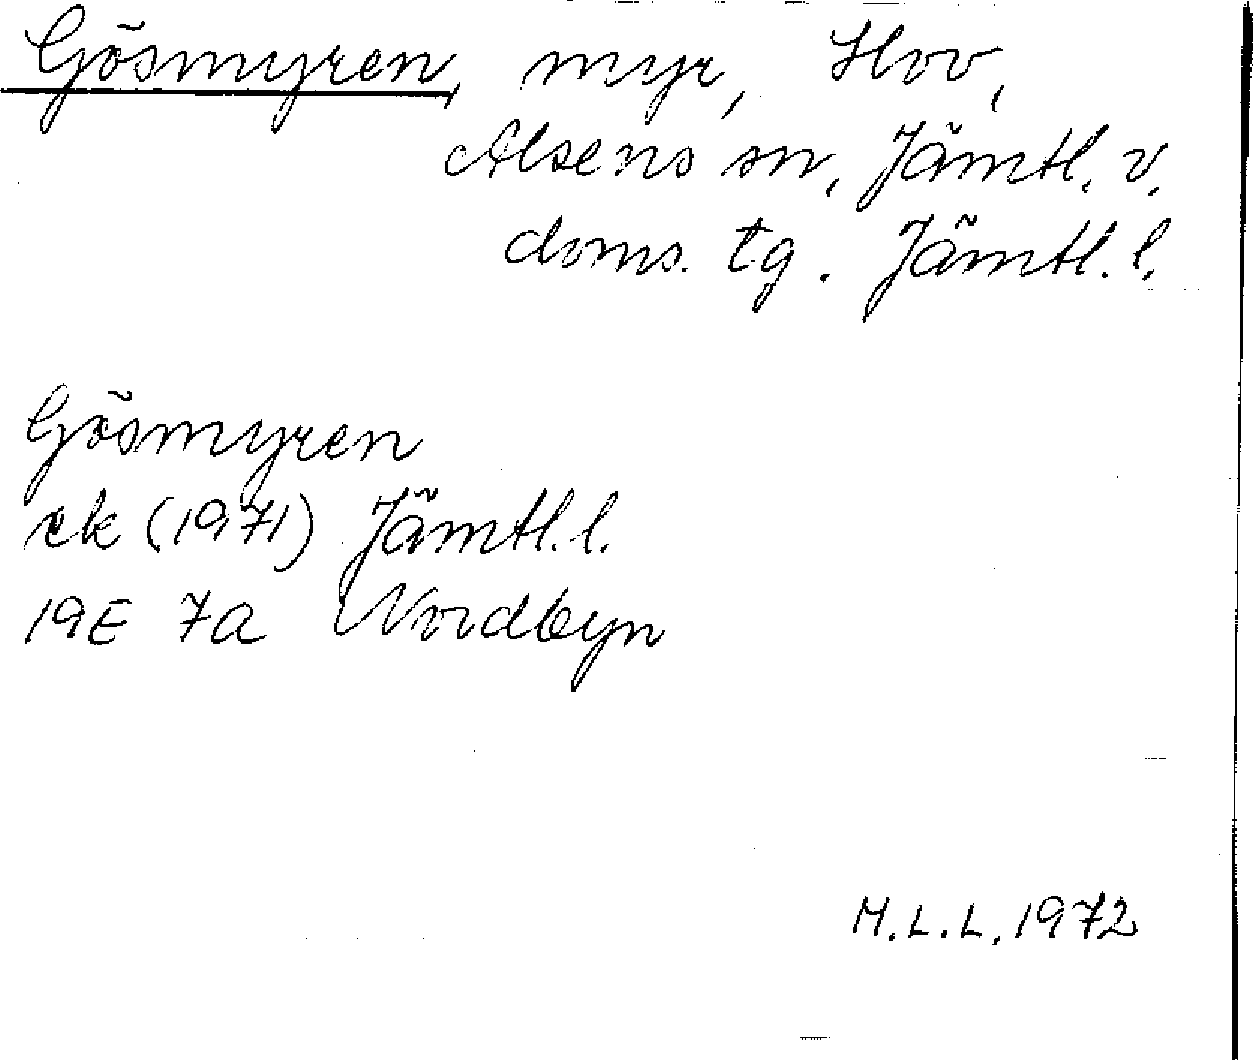 Gösmyren, myr, Hov,
Alsens sn, Jämtl. v.
doms. tg. Jämtl. l.
Gösmyren
rek (1971) Jämtl. l.
19E 7a Nordbyn
M.L.L. 1972